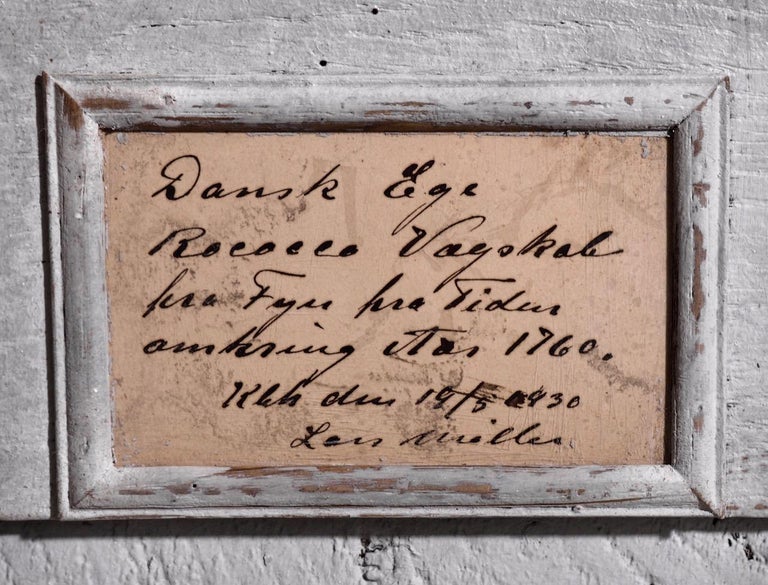 Dansk Ege
Rococco Vægskab
fra Fyn fra Tiden
omkring Aar 1760.
Kbh den 19/5 1930
Møller